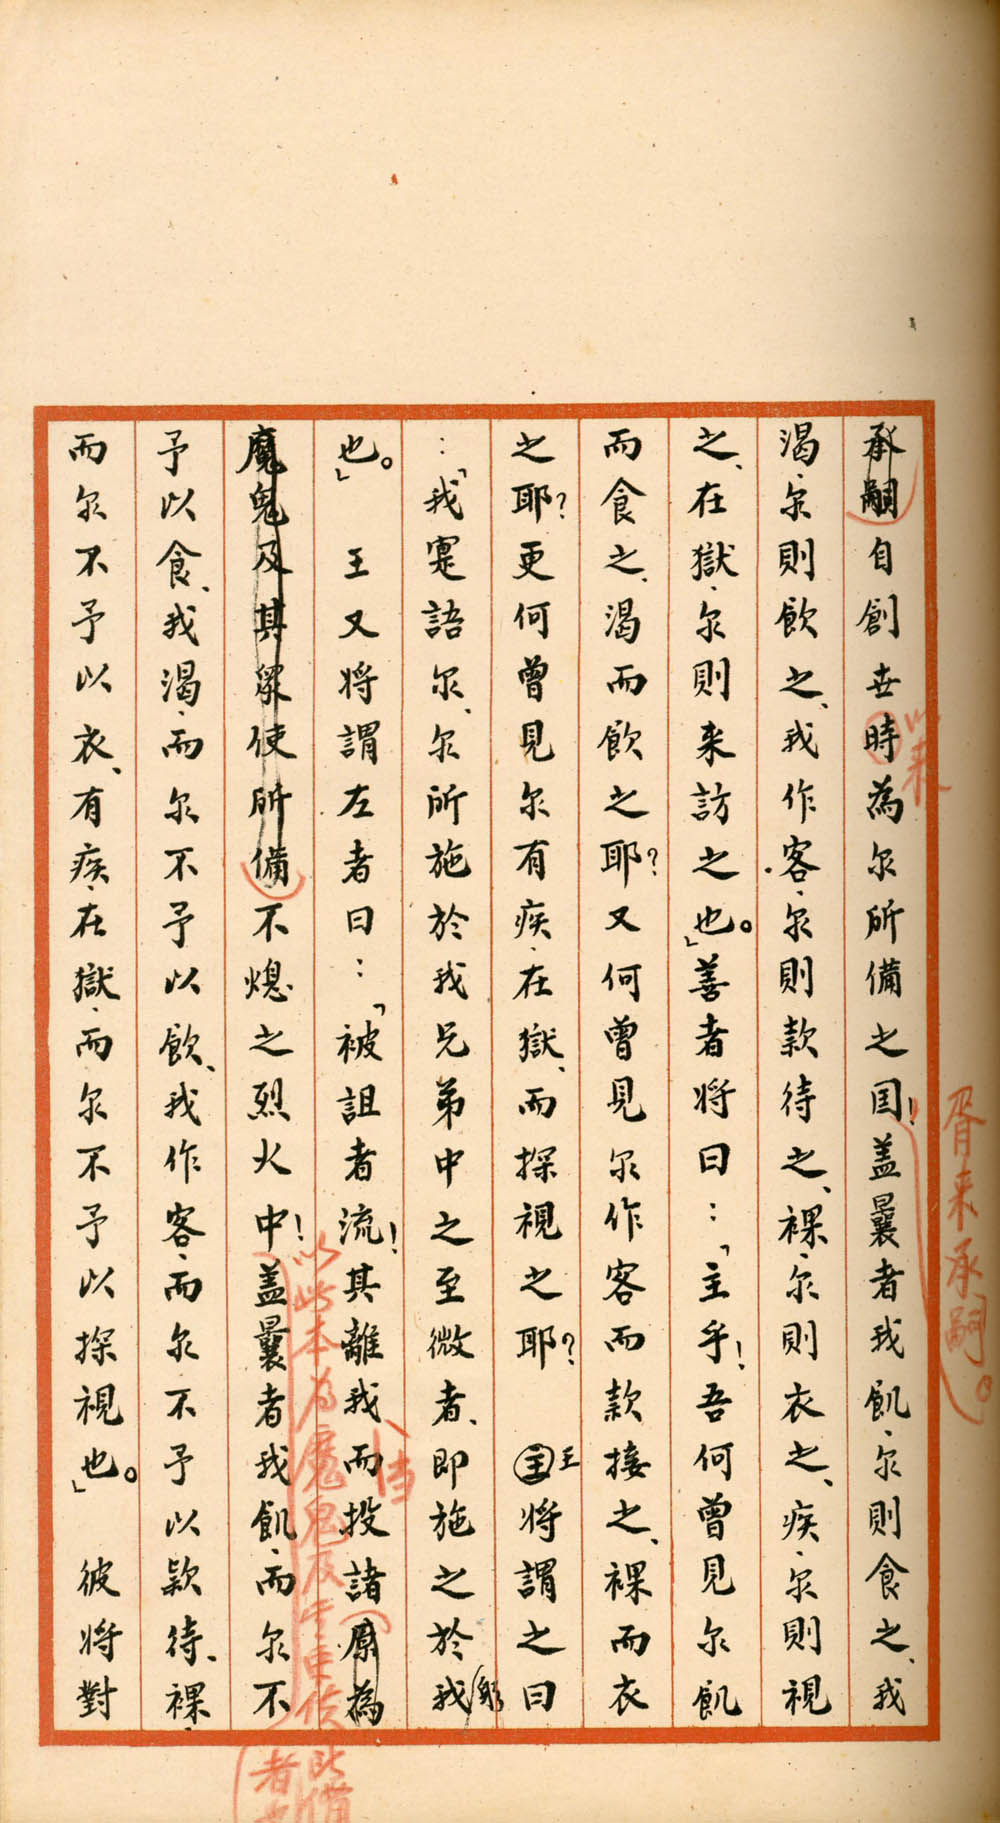 承嗣自創世時為尔所備之国！盖曩者我飢、尔則食之、我
渴、尔則飲之、我作客、尔則款待之、裸、尔則衣之、疾、尔則視
之、在獄、尔則来訪之也。」善者将曰：「主乎！吾何曾見尔飢
而食之、渴而飲之耶？又何曾見尔作客而款接之、裸而衣
之耶？更何曾見尔有疾、在獄、而探視之耶？王将謂之曰
：「我寔語尔、尔所施於我兄弟中之至微者、即施之於我躬
也。」王又将謂左者曰：「被詛者流！其離我而投諸原為
魔鬼及其眾使所備不熄之烈火中！盖曩者我飢、而尔不
予以食、我渴、而尔不予以飲、我作客、而尔不予以款待、裸、
而尔不予以衣、有疾、在獄、而尔不予以探視也。」彼将對
以来
胥来承嗣。
以此本為魔鬼及
此備
者